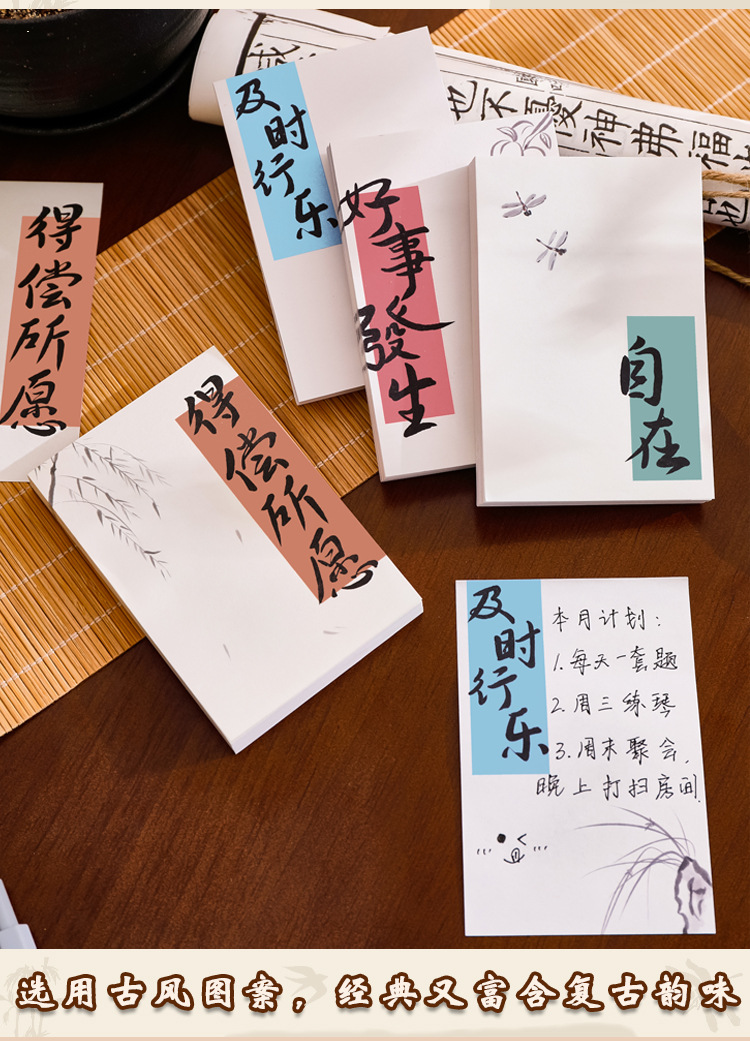 及时行乐
也不再受神佛福
好事發生
自在
得偿所愿
得偿所愿
及时行乐
本月计划：
1.每天一套题
2.周三练琴
3.周末聚会，
晚上打扫房间.
选用古风图案，经典又富含复古韵味